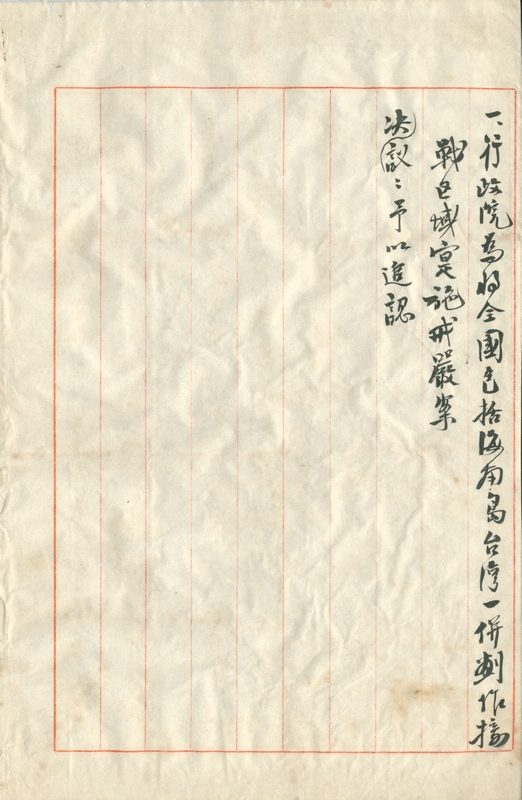 一、行政院為將全國包括海南島台灣一併劃作接
戰区域实施戒嚴案
决議：予以追認